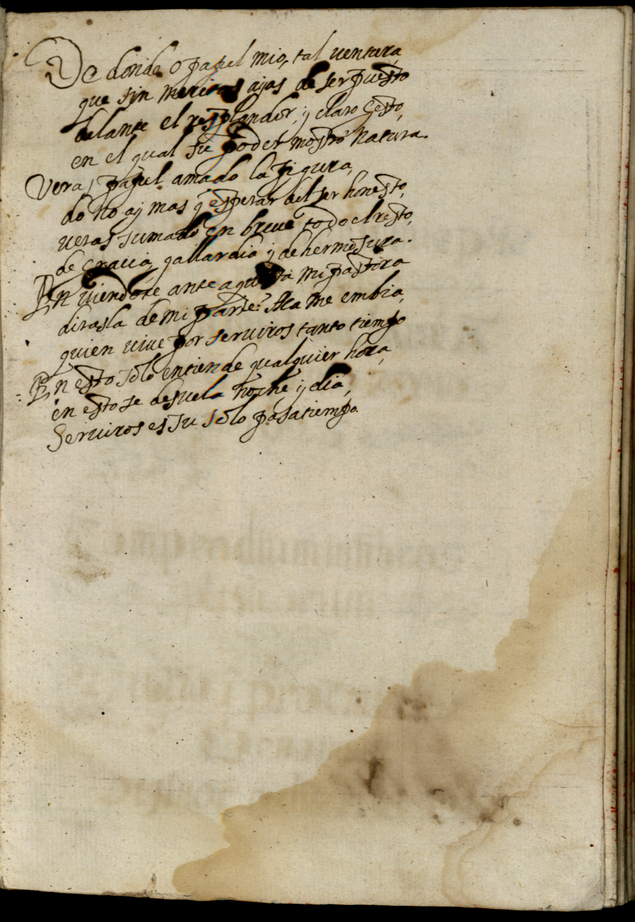 De donde o papel mio, tal uentura,
que sin meritos ajas de ser puesto
delante el resplandor, y claro gesto,
en el qual su poder mostró natura.
Veras, papel amado la figura,
do no aj mas q̃ esperar del ser honesto,
ueras sumado en breue todo el resto,
de gracia, gallardia, y de hermosura.
En uiendote ante aquesta mi pastora
dirasla de mi parte: Aca me embia,
quien uiue por seruiros tanto tiempo
En esto solo entiende qualquier hora,
en esto se desuela noche y dia,
Seruiros es su solo pasatiempo